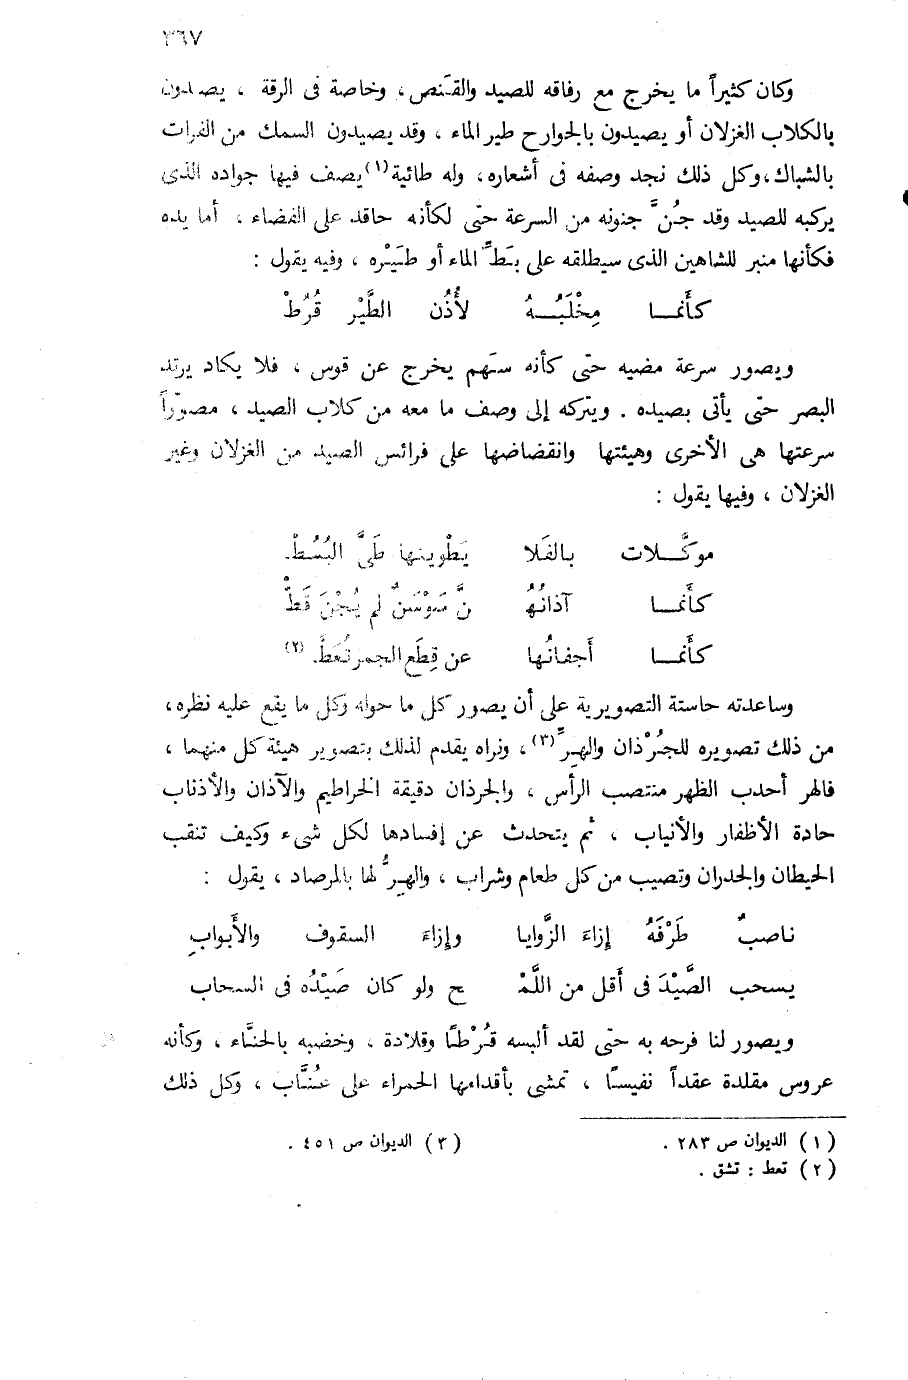 ٣٦٧
وكان كثيراً ما يخرج مع رفاقه للصيد والقَنَص ، وخاصة فى الرقة ، يصيدون
بالكلاب الغزلان أو يصيدون بالجوارح طير الماء ، وقد يصيدون السمك من الفرات
بالشباك، وكل ذلك نجد وصفه فى أشعاره، وله طائية(١) يصف فيها جواده الذى
يركبه للصيد وقد جُنَّ جنونه من السرعة حتى لكأنه حاقد على الفضاء ، أما يده
فكأنها منبر للشاهين الذى سيطلقه على بَطِّ الماء أو طَيْره ، وفيه يقول :
كأَنمــا مِخْلَبُــهُ لأُذُن الطَّيْر قُرُطْ
ويصور سرعة مضيه حتى كأنه سَهم يخرج عن قوس ، فلا يكاد يرتد
البصر حتى يأتى بصيده . ويتركه إلى وصف ما معه من كلاب الصيد ، مصوّراً
سرعتها هى الأخرى وهيئتها وانقضاضها على فرائس الصيد من الغزلان وغير
الغزلان ، وفيها يقول :
موكَّــلات بالفَلا يَطْوينها طَىَّ البُسُطْ
كأَنمــا آذانُها نَّ سَوْسَنٌ لم يُجْنَ قَطّْ
كأَنمــا أَجفانُها عن قِطَع الجمر تُعَطّْ (٢)
وساعدته حاسته التصويرية على أن يصور كل ما حوله وكل ما يقع عليه نظره ،
من ذلك تصويره للجُرْذان والهِرِّ(٣) ، ونراه يقدم لذلك بتصوير هيئة كل منهما ،
فالهر أحدب الظهر منتصب الرأس ، والجرذان دقيقة الخراطيم والآذان والأذناب
حادة الأظفار والأنياب ، ثم يتحدث عن إفسادها لكل شىء وكيف تنقب
الحيطان والجدران وتصيب من كل طعام وشراب ، والهِرُّ لها بالمرصاد ، يقول :
ناصبٌ طَرْفَهُ إزاءَ الزَّوايا وإزاءَ السقوف والأَبوابِ
يسحب الصَّيْدَ فى أَقل من اللَّمْ ح ولو كان صَيْدُه فى السحاب
ويصور لنا فرحه به حتى لقد ألبسه قُرْطًا وقلادة ، وخضبه بالحنَّاء ، وكأنه
عروس مقلدة عقداً نفيسًا ، تمشى بأقدامها الحمراء على عُنَّاب ، وكل ذلك
(١) الديوان ص ٢٨٣ .
(٢) تعط : تشق .
(٣) الديوان ص ٤٥١ .